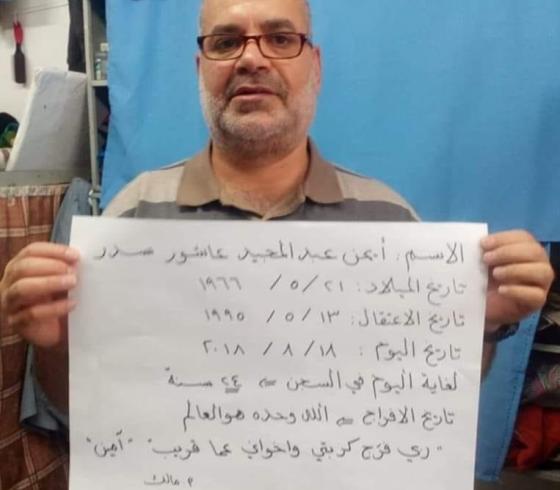 الاسم: أيمن عبد المجيد عاشور سدر
تاريخ الميلاد: ٢١ / ٥ / ١٩٦٦
تاريخ الاعتقال: ١٣ / ٥ / ١٩٩٥
تاريخ اليوم: ١٨ / ٨ / ٢٠١٨
لغاية اليوم في السجن ⇐ ٢٤ سنة
تاريخ الافراج ⇐ الله وحده هو العالم
"ربي فرّج كربتي واخواني عما قريب" "آمين"